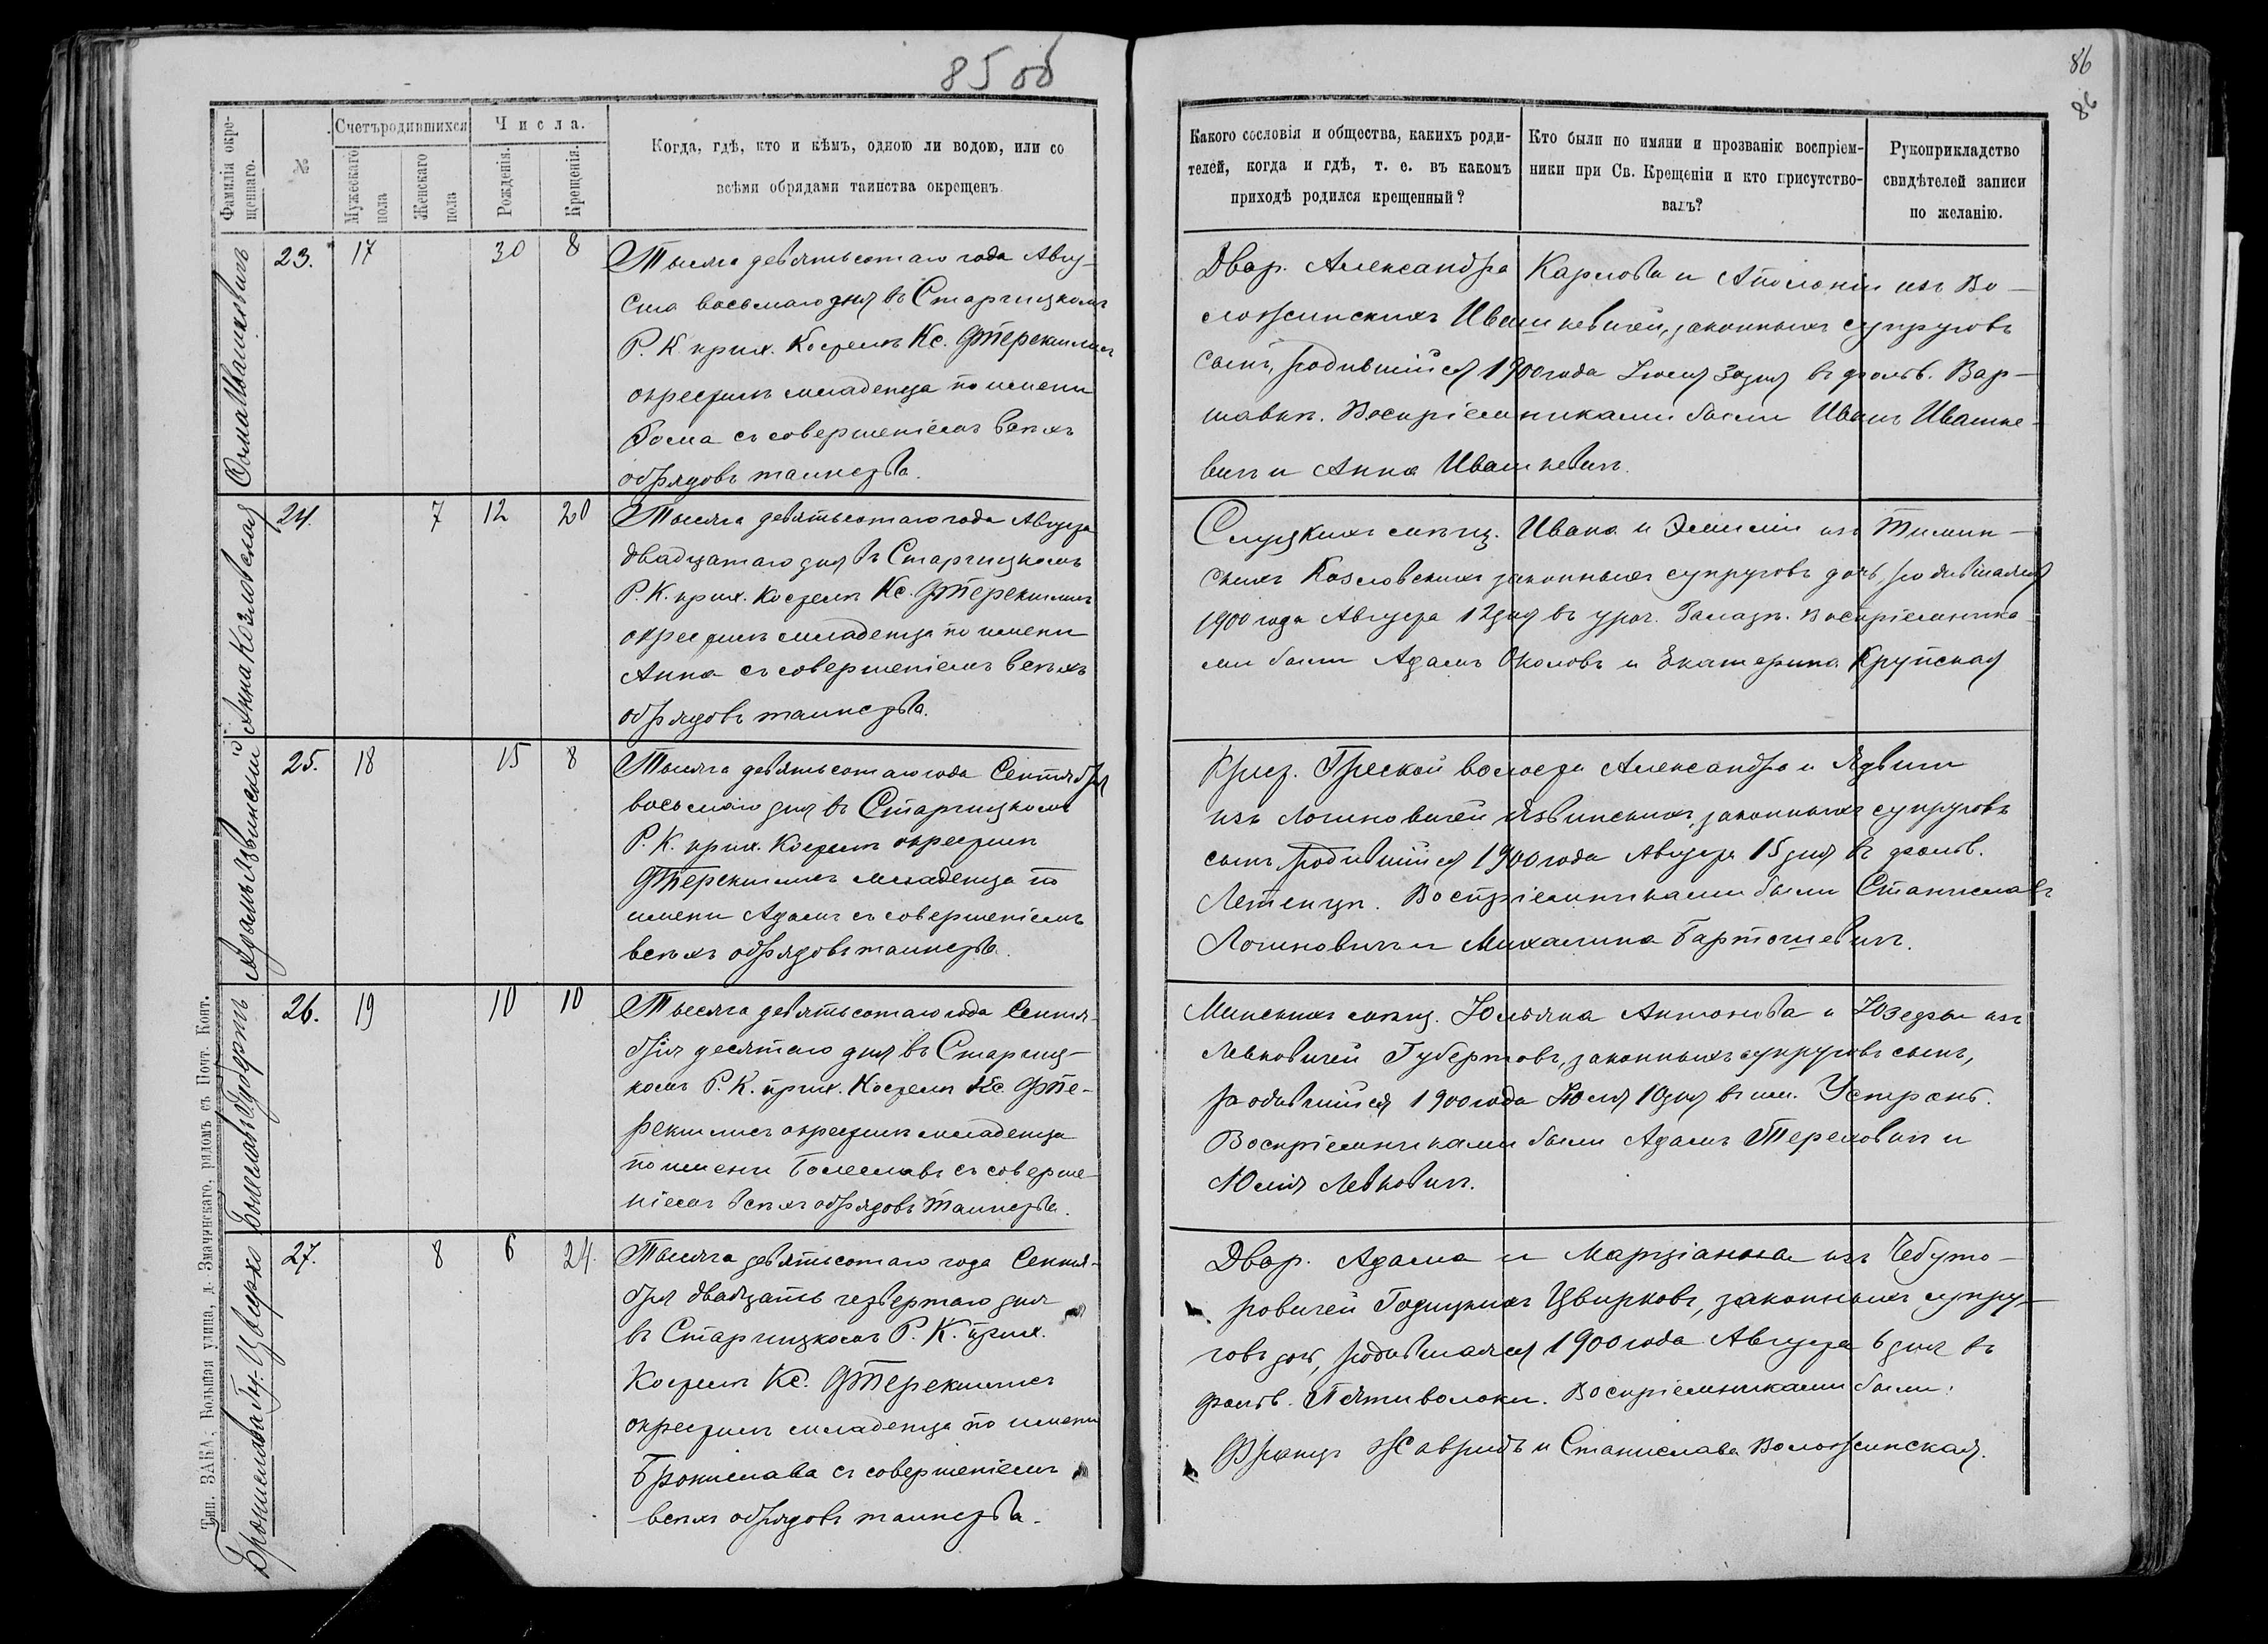 85 об
Фамилія окре-
щеннаго.
№
Счетъ родившихся
Мужескаго
пола
Женскаго
пола
Числа.
Рожденія.
Крещенія.
Когда, гдѣ, кто и кѣмъ, одною ли водою, или со
всѣми обрядами таинства окрещенъ.
Ѳома Ивашкевичъ
23. 17 30 8
Тысяча девятьсотаго года Авгу-
ста восьмаго дня въ Старчицкомъ
Р. К. прих. Костелѣ Кс.
окрестилъ младенца по имени
Ѳома съ совершеніемъ всѣхъ
обрядовъ таинства.
Анна Козловская
24. 7 12 20
Тысяча девятьсотаго года Августа
двадцатаго дня въ Старчицкомъ
Р. К. прих. Костелѣ Кс.
окрестилъ младенца по имени
Анна съ совершеніемъ всѣхъ
обрядовъ таинства.
Адамъ Язвинскій
25. 18 15 8
Тысяча девятьсотаго года Сентября
восьмаго дня въ Старчицкомъ
Р. К. прих. Костелѣ окрестилъ
младенца по
имени Адамъ съ совершеніемъ
всѣхъ обрядовъ таинства.
Болеславъ Губертъ
26. 19 10 10
Тысяча девятьсотаго года Сентя-
бря десятаго дня въ Старчиц-
комъ Р. К. прих. Костелѣ Кс.
окрестилъ младенца
по имени Болеславъ съ соверше-
ніемъ всѣхъ обрядовъ таинства.
Бронислава Гц. Цвирко
27. 8 6 24.
Тысяча девятьсотаго года Сентя-
бря двадцать четвертаго дня
въ Старчицкомъ Р. К. прих.
Костелѣ Кс.
окрестилъ младенца по имени
Бронислава съ совершеніемъ
всѣхъ обрядовъ таинства.
Тип. ЗАКА, Большая улица, д. Змачинскаго, рядомъ съ Почт. Конт.
86
86
Какого сословія и общества, какихъ роди-
телей, когда и гдѣ, т. е. въ какомъ
приходѣ родился крещенный?
Кто были по имяни и прозванію воспріем-
ники при Св. Крещеніи и кто присутство-
валъ?
Рукоприкладство
свидѣтелей записи
по желанію.
Двор. Александра Карлова и Аполоніи изъ Во-
ложинскихъ Ивашкевичей, законныхъ супруговъ
сынъ, родившійся 1900 года Іюля 30 дня въ фольв. Вар-
шавкѣ. Воспріемниками были Иванъ Ивашке-
вичъ и Анна Ивашкевичъ.
Слуцкихъ мѣщ. Ивана и Эмиліи изъ Тимин-
скихъ Козловскихъ законныхъ супруговъ дочь, родившаяся
1900 года Августа 12 дня въ уроч. Воспріемника-
ми были Адамъ Околовъ и Екатерина Крупская
Крест. Греской волости Александра и Ядвиги
изъ Логиновичей Язвинскихъ, законныхъ супруговъ
сынъ, родившійся 1900 года Августа 15 дня въ фольв.
Воспріемниками были Станиславъ
Логиновичъ и Михалина Бартошевичъ.
Минскихъ мѣщ. Юльяна Антонова и Юзефы изъ
Левковичей Губертовъ, законныхъ супруговъ сынъ,
родившійся 1900 года Іюля 10 дня въ им. Устронь.
Воспріемниками были Адамъ Тереховичъ и
Юлія Левковичъ.
Двор. Адама и Марціанны изъ Чебуто-
ровичей Годицкихъ Цвирковъ, законныхъ супру-
говъ дочь, родившаяся 1900 года Августа 6 дня въ
фольв. Пятиволоки. Воспріемниками были:
Францъ Жавридъ и Станислава Воложинская.